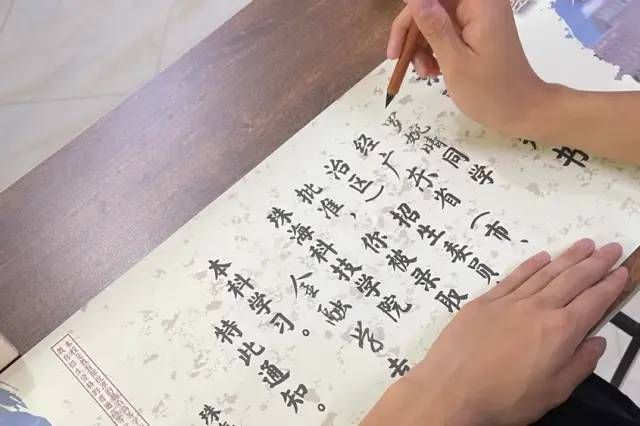 书
罗婉晴同学
经广东省(市、
治区)招生委员
批准,你被录取
珠海科技学院
金融学
本科学习。
特此通知。
珠